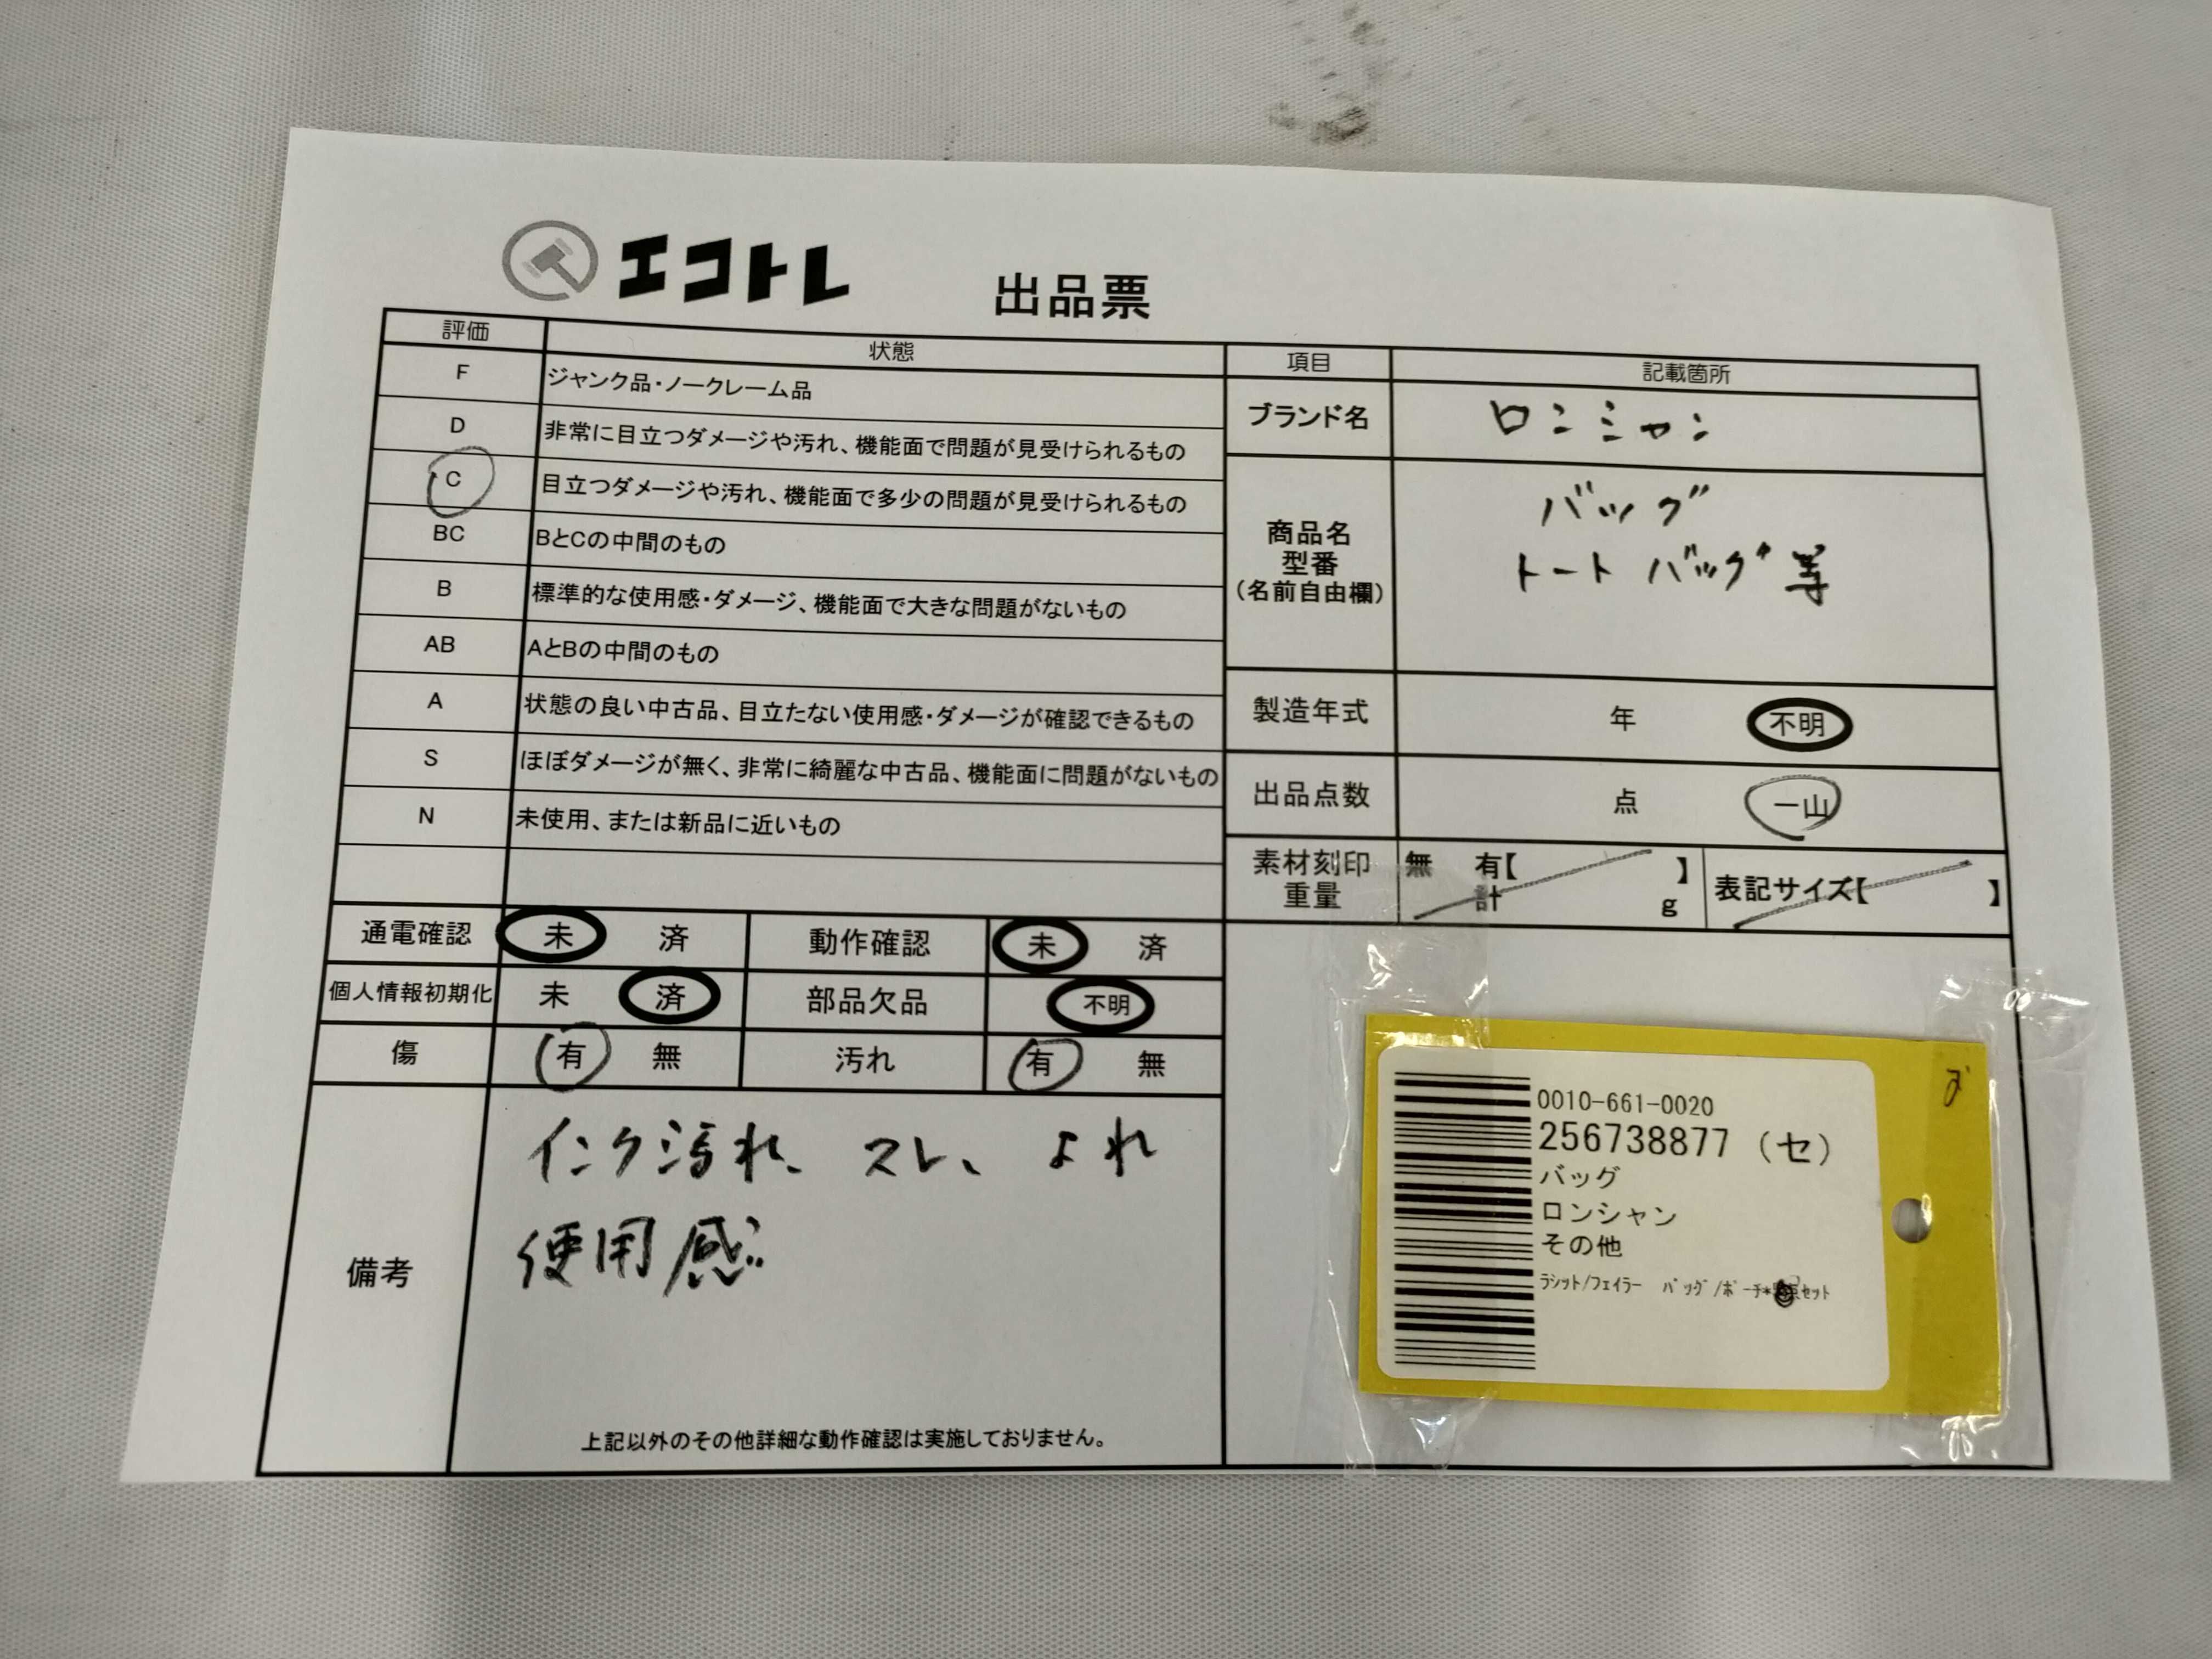 エコトレ 出品票
評価 状態
F ジャンク品・ノークレーム品
D 非常に目立つダメージや汚れ、機能面で問題が見受けられるもの
C 目立つダメージや汚れ、機能面で多少の問題が見受けられるもの
BC BとCの中間のもの
B 標準的な使用感・ダメージ、機能面で大きな問題がないもの
AB AとBの中間のもの
A 状態の良い中古品、目立たない使用感・ダメージが確認できるもの
S ほぼダメージが無く、非常に綺麗な中古品、機能面に問題がないもの
N 未使用、または新品に近いもの
通電確認 未 済 動作確認 未 済
個人情報初期化 未 済 部品欠品 不明
傷 有 無 汚れ 有 無
備考
インク汚れ、スレ、よれ
使用感
上記以外のその他詳細な動作確認は実施しておりません。
項目 記載箇所
ブランド名 ロンシャン
商品名
型番
(名前自由欄)
バッグ
トートバッグ等
製造年式 年 不明
出品点数 点 一山
素材刻印
重量
無 有【 】
計 g
表記サイズ【 】
0010-661-0020
256738877 (セ)
バッグ
ロンシャン
その他
ラシット/フェイラー バッグ/ポーチ*
セット